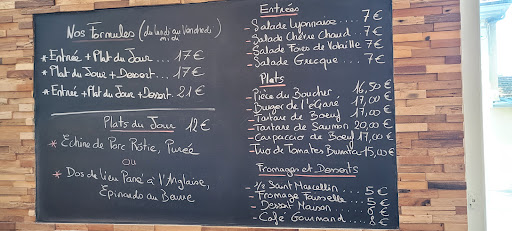 Nos Formules (du lundi au Vendredi)
midi
* Entrée + Plat du Jour ... 17€
* Plat du Jour + Dessert ... 17€
* Entrée + Plat du Jour + Dessert. 21€
Plats du Jour 12€
* Echine de Porc Rôtie, Purée
ou
* Dos de Lieu Pané à l'Anglaise,
Epinards au Beurre
Entrées
- Salade Lyonnaise .... 7€
- Salade Chèvre Chaud .. 7€
- Salade Foies de Volaille 7€
- Salade Grecque .... 7€
Plats
- Pièce du Boucher 16,50€
- Burger de l'eGare 17,00€
- Tartare de Boeuf 17,00€
- Tartare de Saumon 20,00€
- Carpaccio de Boeuf 17,00€
- Trio de Tomates Burrata - 15,00€
Fromages et Desserts
- 1/2 Saint Marcellin .... 5€
- Fromage Faisselle .... 5€
- Dessert Maison .... 6€
- Café Gourmand .. 8€